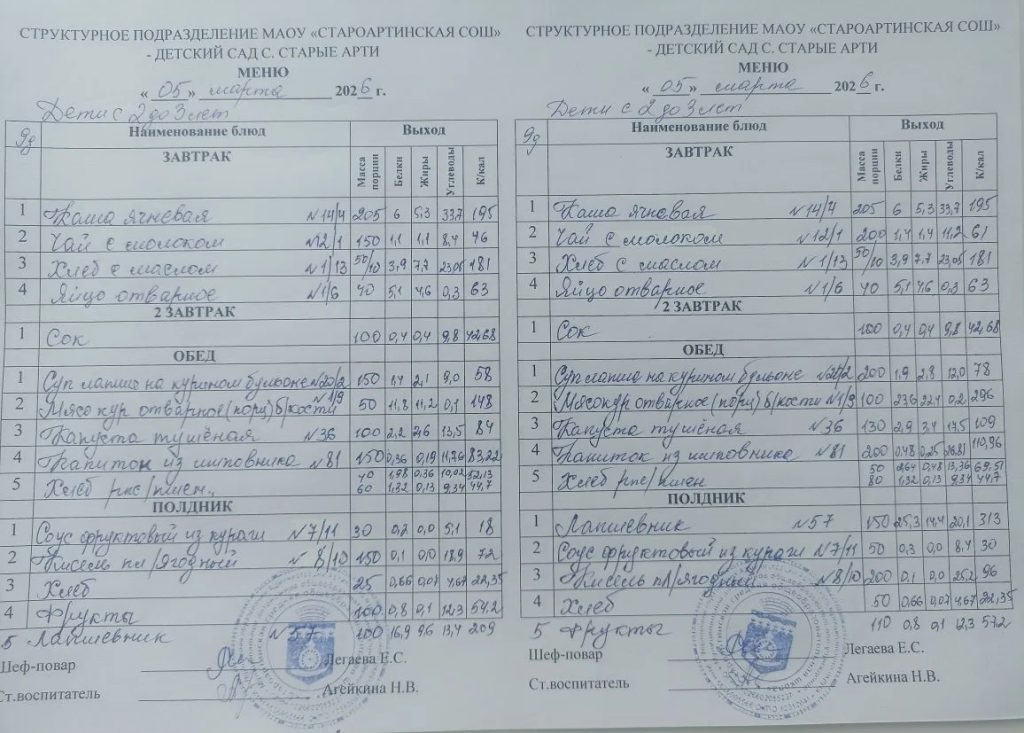 СТРУКТУРНОЕ ПОДРАЗДЕЛЕНИЕ МАОУ «СТАРОАРТИНСКАЯ СОШ»
- ДЕТСКИЙ САД С. СТАРЫЕ АРТИ
МЕНЮ
« 05 » марта 2026 г.
Дети с 2 до 3 лет
9д Наименование блюд Выход
ЗАВТРАК Масса порции Белки Жиры Углеводы К/кал
1 Каша ячневая №14/4 205 6 5,3 33,7 195
2 Чай с молоком №12/1 150 1,1 1,1 8,4 46
3 Хлеб с маслом №1/13 50/10 3,9 7,7 23,05 181
4 Яйцо отварное №1/6 40 5,1 4,6 0,3 63
2 ЗАВТРАК
1 Сок 100 0,4 0,4 9,8 42,68
ОБЕД
1 Суп лапша на курином бульоне №20/2 150 1,4 2,1 9,0 58
2 Мясо кур отварное (порц) б/кости №1/9 50 11,8 11,2 0,1 148
3 Капуста тушёная №36 100 2,2 2,6 13,5 84
4 Напиток из шиповника №81 150 0,36 0,19 83,22
5 Хлеб рж/пшен. 40 1,98 0,36 10,02 52,13
60 1,32 0,13 9,34 44,7
ПОЛДНИК
1 Соус фруктовый из кураги №7/11 30 0,2 0,0 5,1 18
2 Кисель пл/ягодный №8/10 150 0,1 0,0 18,9 72
3 Хлеб 25 0,66 0,07 4,67 22,35
4 Фрукты 100 0,8 0,1 12,3 54,2
5 Лапшевник №57 100 16,9 9,6 13,4 209
Шеф-повар Легаева Е.С.
Ст.воспитатель Агейкина Н.В.
СТРУКТУРНОЕ ПОДРАЗДЕЛЕНИЕ МАОУ «СТАРОАРТИНСКАЯ СОШ»
- ДЕТСКИЙ САД С. СТАРЫЕ АРТИ
МЕНЮ
« 05 » марта 2026 г.
Дети с 2 до 3 лет
9д Наименование блюд Выход
ЗАВТРАК Масса порции Белки Жиры Углеводы К/кал
1 Каша ячневая №14/4 205 6 5,3 33,7 195
2 Чай с молоком №12/1 200 1,4 1,4 11,2 61
3 Хлеб с маслом №1/13 50/10 3,9 7,7 23,05 181
4 Яйцо отварное №1/6 40 5,1 4,6 0,3 63
2 ЗАВТРАК
1 Сок 100 0,4 0,4 9,8 42,68
ОБЕД
1 Суп лапша на курином бульоне №20/2 200 1,9 2,8 12,0 78
2 Мясо кур отварное (порц) б/кости №1/9 100 23,6 22,4 0,2 296
3 Капуста тушёная №36 130 2,9 3,4 17,5 109
4 Напиток из шиповника №81 200 0,48 0,25 110,96
5 Хлеб рж/пшен 50 2,64 0,48 13,36 69,51
80 1,32 0,13 9,34 44,7
ПОЛДНИК
1 Лапшевник №57 150 25,3 14,4 20,1 313
2 Соус фруктовый из кураги №7/11 50 0,3 0,0 8,4 30
3 Кисель пл/ягодный №8/10 200 0,1 0,0 25,2 96
4 Хлеб 50 0,66 0,07 4,67 22,35
5 Фрукты 110 0,8 0,1 12,3 572
Шеф-повар Легаева Е.С.
Ст.воспитатель Агейкина Н.В.